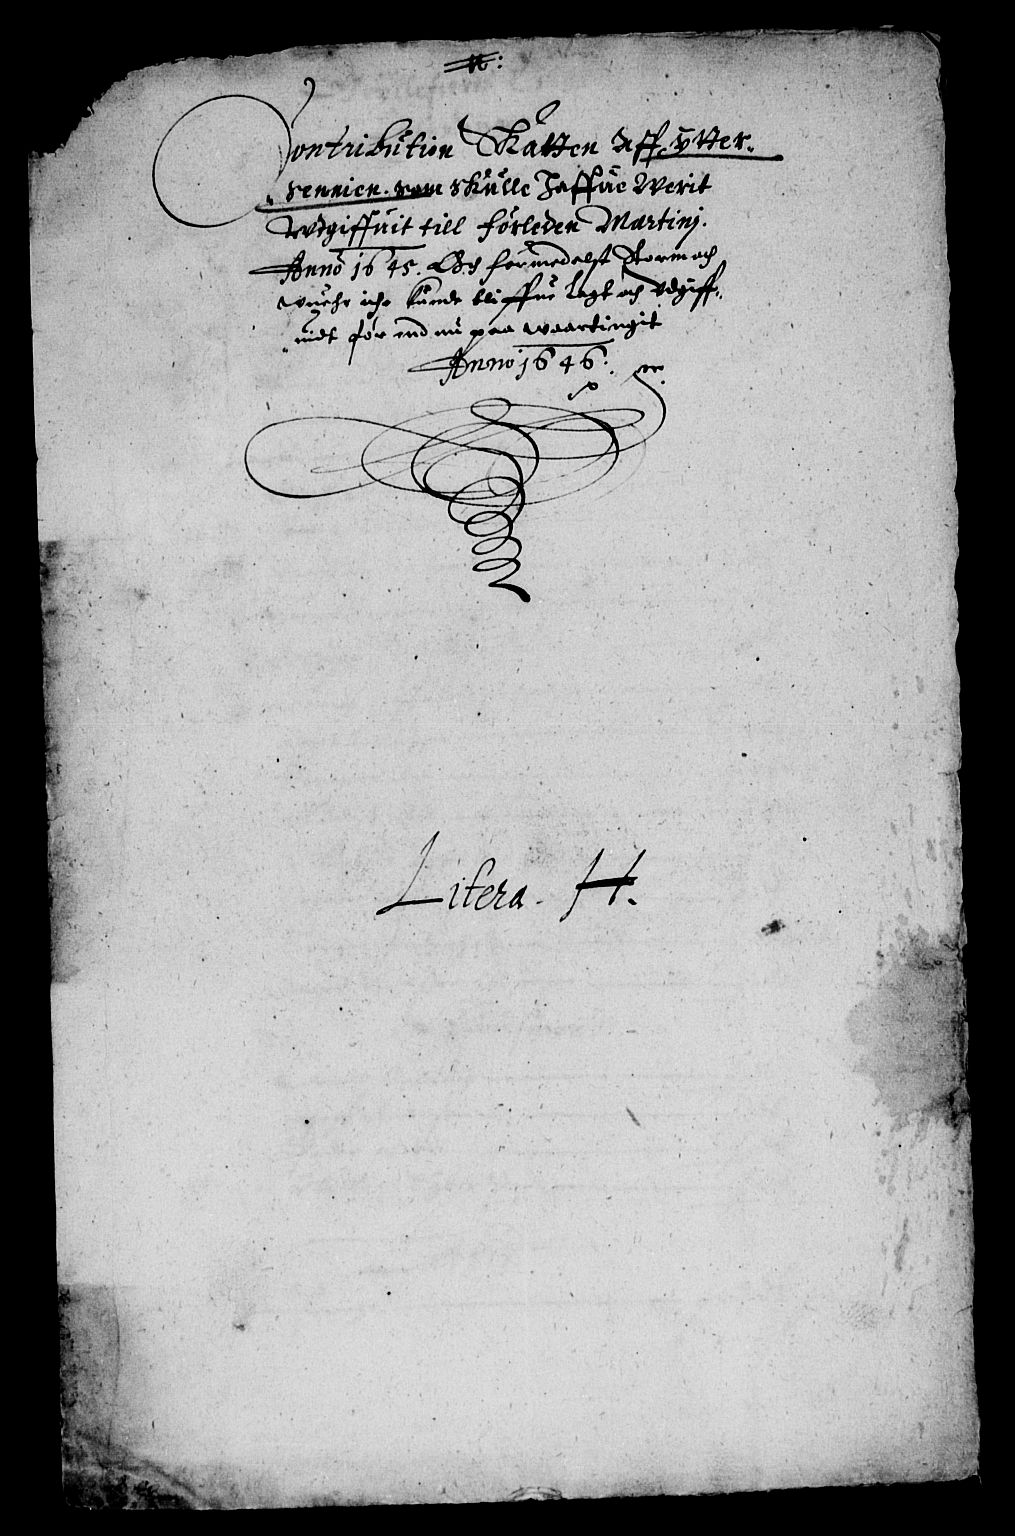 Contribution Skatten Aff ytter¬
sennien. som skulle haffue Werit
Wdgiffuit till förleden Martinj.
Anno 1645. Och formedelst storm och
wuehr iche kunde bliffue lagt och Vdgiff¬
uidt för end nu paa waartingit
Anno 1646.
Litera. H.